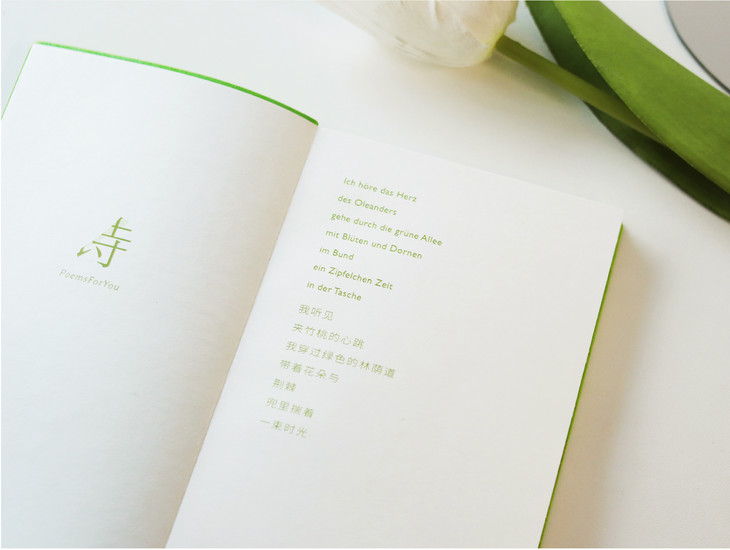 PoemsForYou
Ich höre das Herz
des Oleanders
gehe durch die grüne Allee
mit Blüten und Dornen
im Bund
ein Zipfelchen Zeit
in der Tasche
我听见
夹竹桃的心跳
我穿过绿色的林荫道
带着花朵与
荆棘
兜里揣着
一束时光